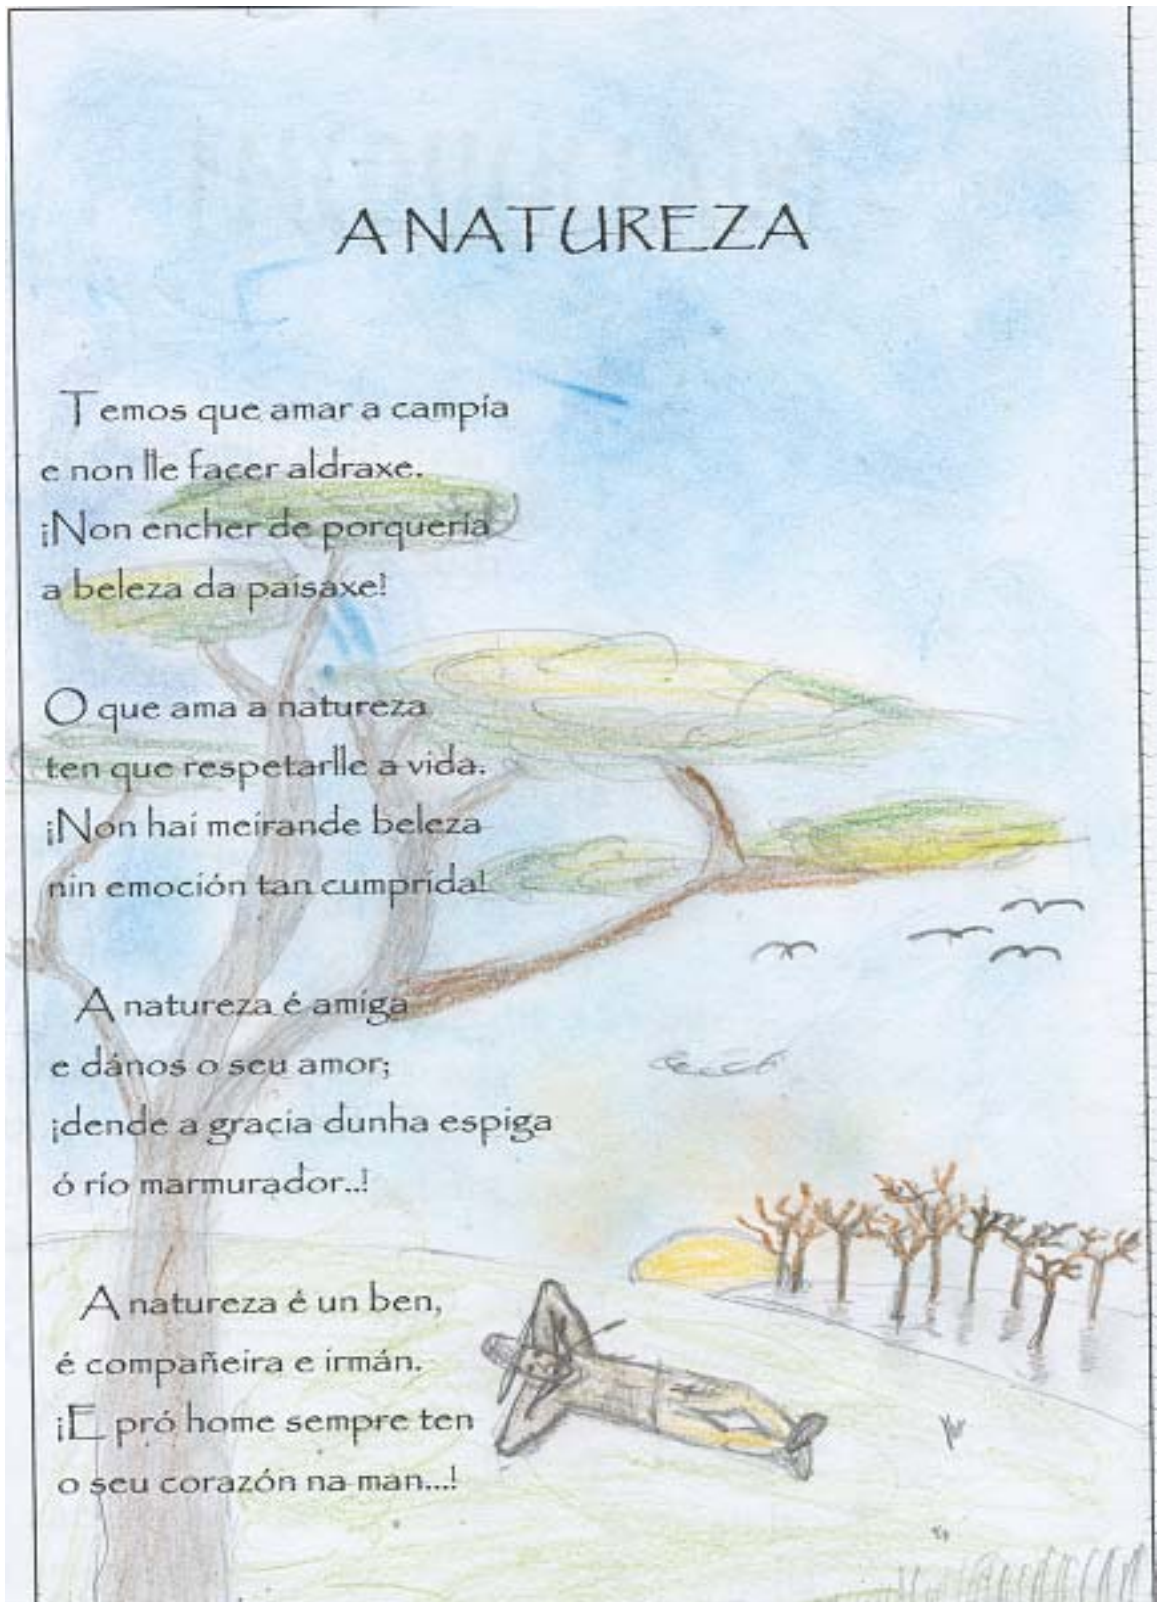 A NATUREZA
Temos que amar a campía
e non lle facer aldraxe.
¡Non encher de porquería
a beleza da paisaxe!
O que ama a natureza
ten que respetarlle a vida.
¡Non hai meirande beleza
nin emoción tan cumprida!
A natureza é amiga
e dános o seu amor;
¡dende a gracia dunha espiga
ó río marmurador..!
A natureza é un ben,
é compañeira e irmán.
¡E pró home sempre ten
o seu corazón na man...!